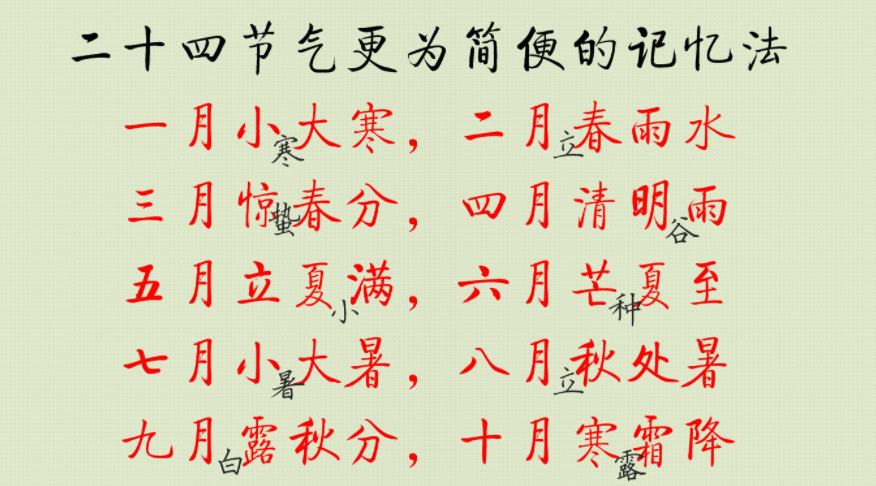 二十四节气更为简便的记忆法
一月小寒大寒，二月立春雨水
三月惊蛰春分，四月清明谷雨
五月立夏小满，六月芒种夏至
七月小暑大暑，八月立秋处暑
九月白露秋分，十月寒露霜降